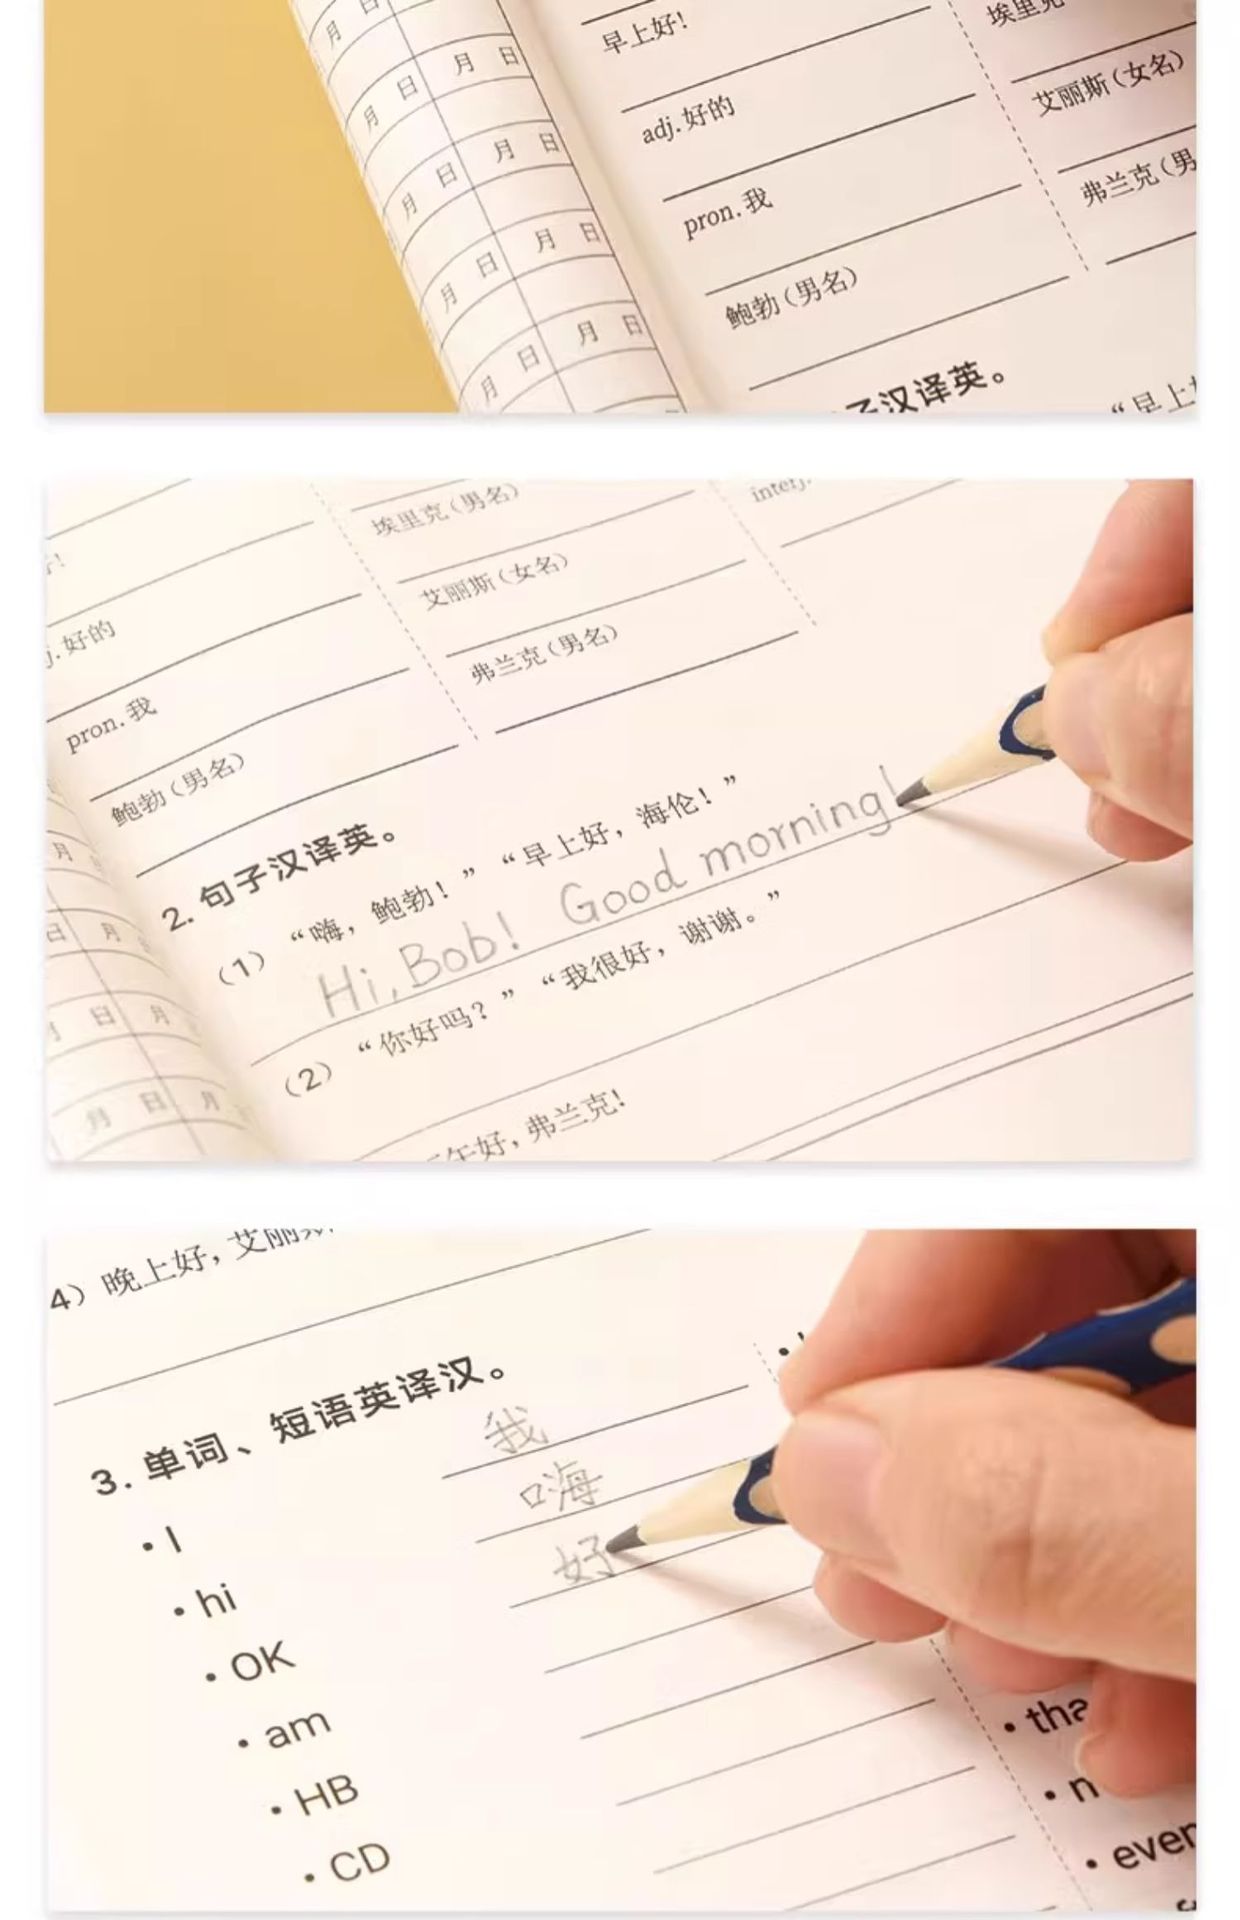 月 日
月 日
月 日
月 日
月 日
月 日
月 日
月 日
早上好!
adj. 好的
pron. 我
鲍勃(男名)
埃里克
艾丽斯(女名)
弗兰克(男
子汉译英。
“早上
埃里克(男名)
艾丽斯(女名)
弗兰克(男名)
interj.
好的
pron. 我
鲍勃(男名)
2. 句子汉译英。
(1) “嗨，鲍勃！” “早上好，海伦！”
Hi, Bob! Good morning!
(2) “你好吗？” “我很好，谢谢。”
午好, 弗兰克!
月
日 月
日 月
月 日 月
4) 晚上好, 艾丽
3. 单词、短语英译汉。
• I 我
• hi 嗨
• OK 好
• am
• HB
• CD
• tha
• n
• even